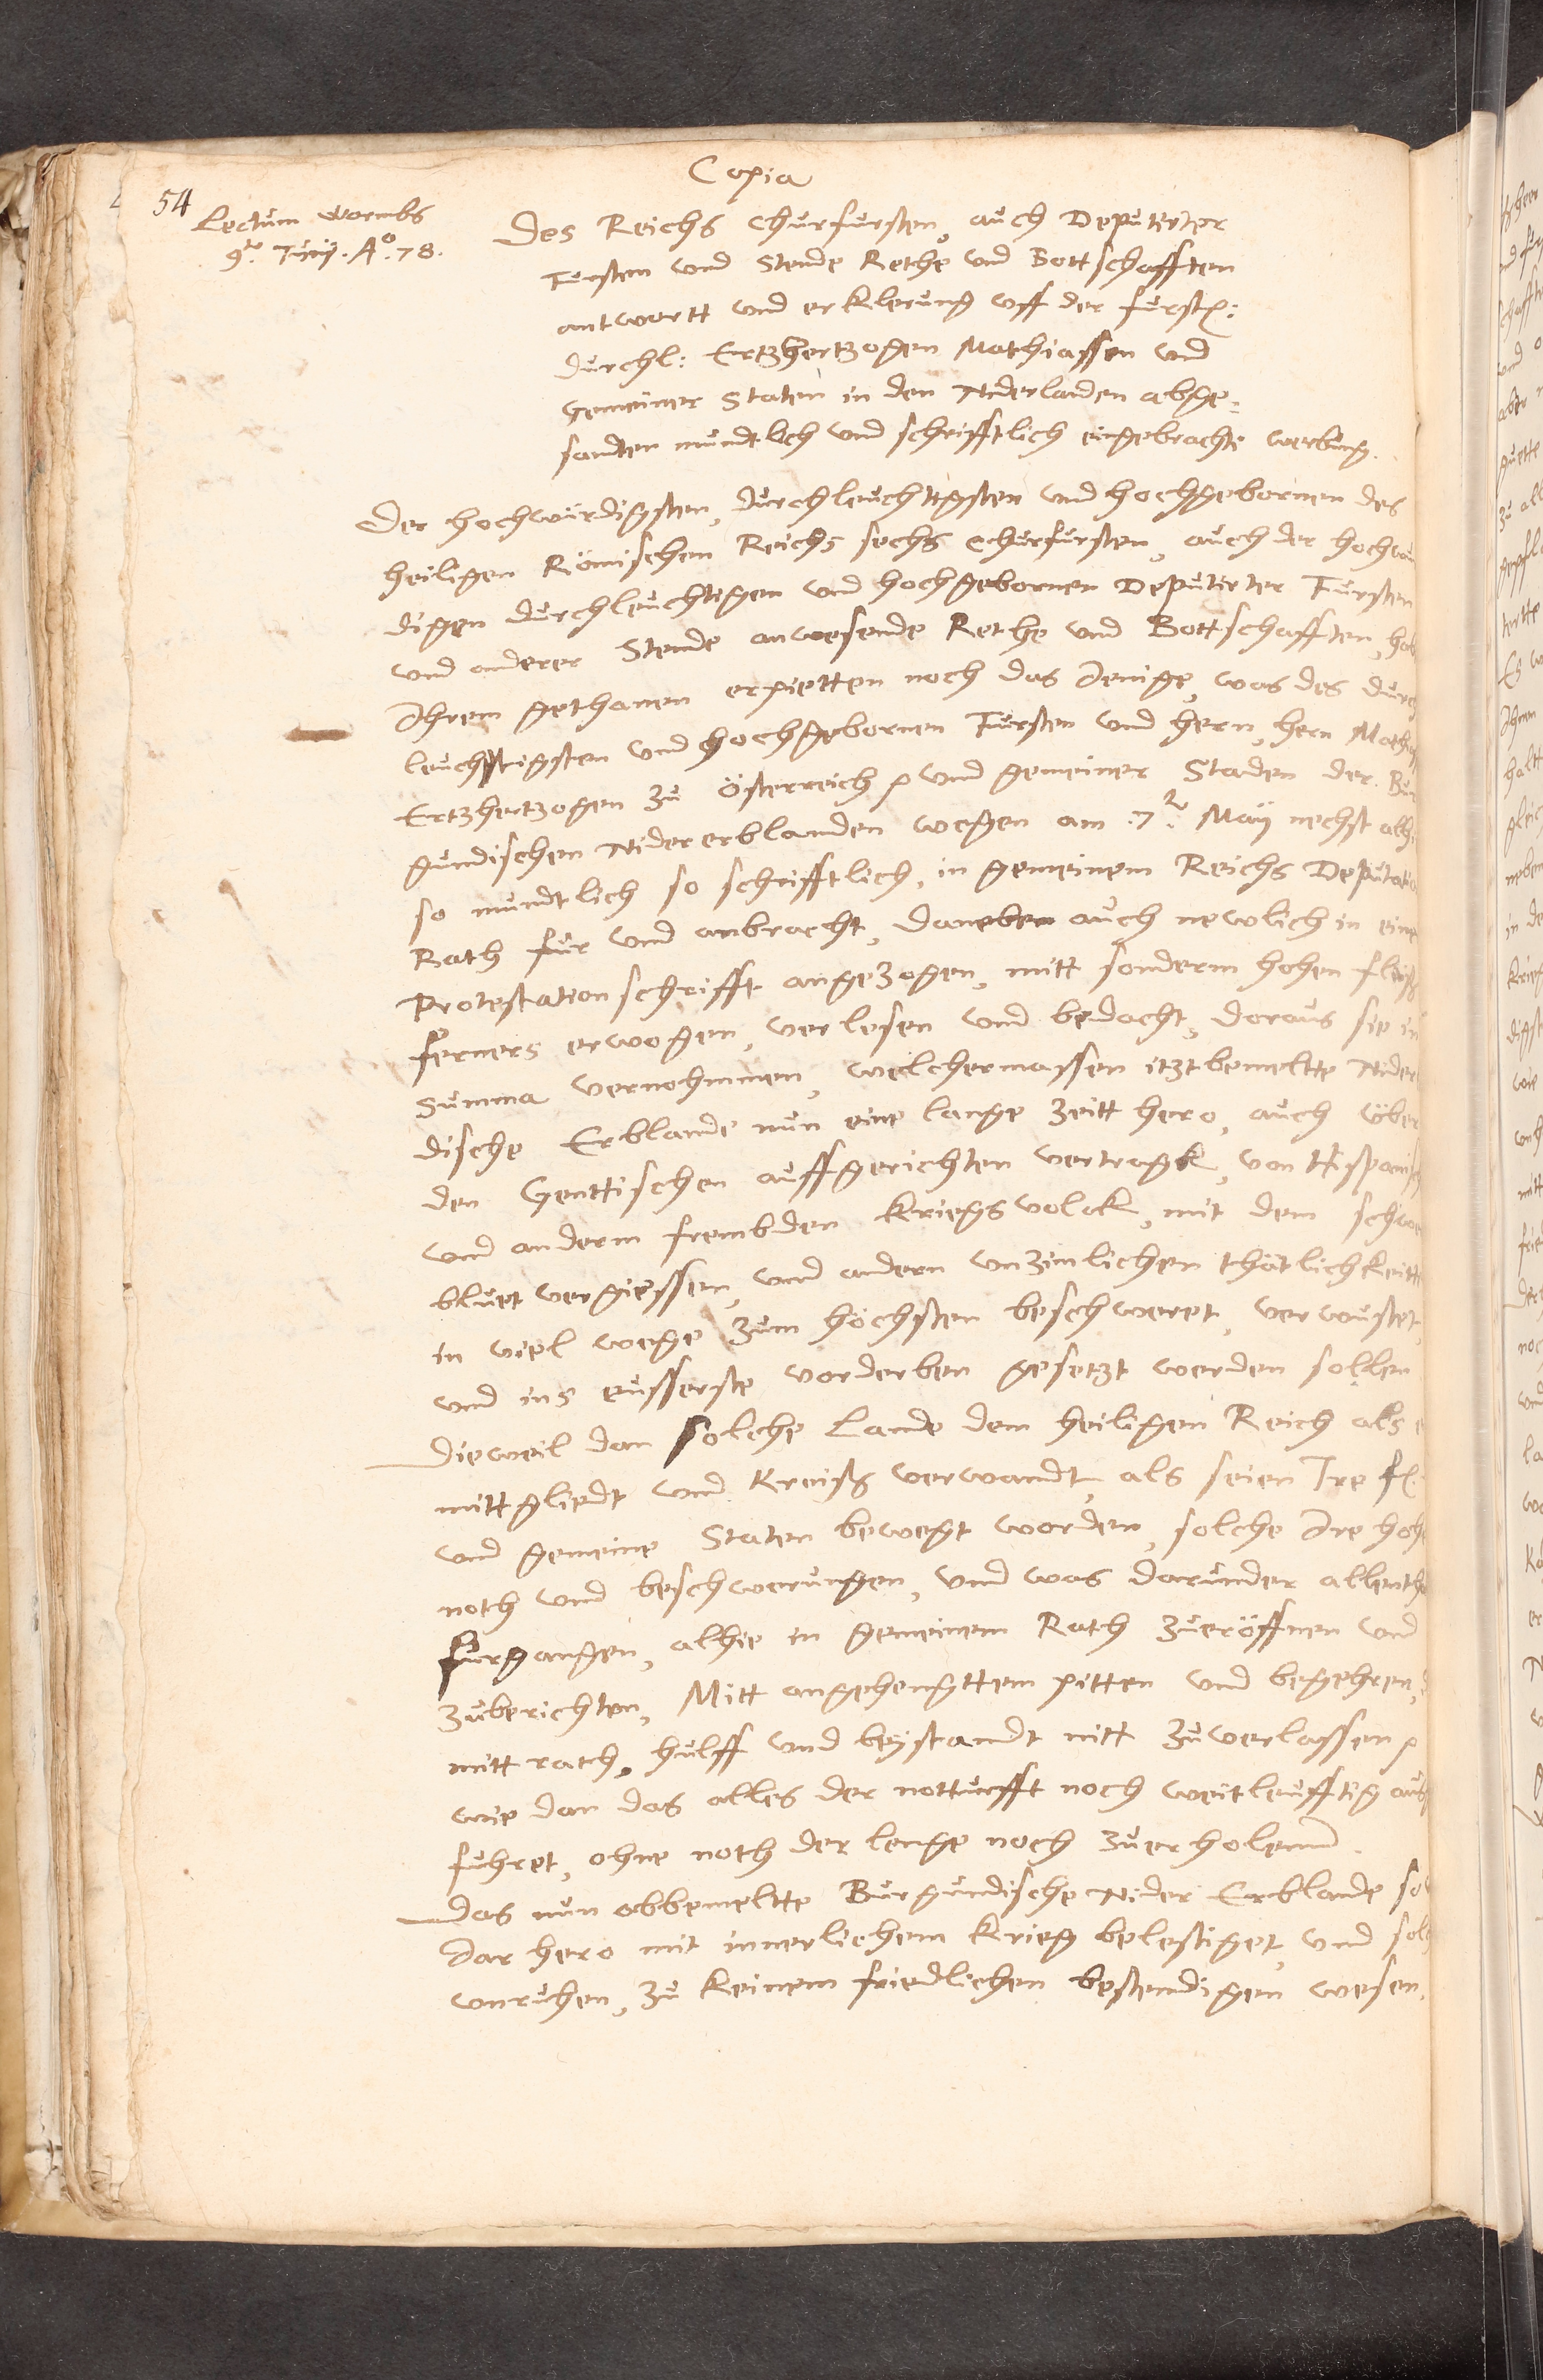 Copia
54
Lectum Wormbs
9ᵃ. Junÿ. Aᵒ. 78.
Des Reichs Churfursten, auch Deputirter
Fursten und Stende Rethe und Bottschafften
antwortt und erklerung uff der furstl:
durchl: Ertzhertzogen Mathiassen und
Gemeiner Staten in den Niderlanden abge=
sandten mundtlich und schrifftlich eingebrachte werbung.
Der hochwürdigsten, durchleuchtigsten und hochgebornen des
heiligen Römischen Reichs sechs Churfursten, auch der hochwur
digen durchleuchtigen und hochgebornen Deputirter Fursten
und anderer Stende anwesende Rethe und Bottschafften, hab
Ihrem gethanen erpietten noch das Jenige, was des durch
leuchtigsten und hochgebornen Fursten und hern, hern Mathi
Ertzhertzogen zu Österreich p und gemeiner Staden der Bur
gundischen Nidererblanden wegen am .7. May nechst alhi
so mundtlich so schrifftlich, in gemeinem Reichs Deputatio
Rath fur und anbracht, daneben auch newlich in eine
Protestation schrifft angezogen, mitt sonderm hohen fleiß
ferners erwogen, verlesen und bedacht, doraus sie in
Summa vernohmmen, welchermassen itztbemeltte Nider
dische Erblande nun eine lange Zeitt hero, auch über
den Genttischen auffgerichten vertragk, von Hispanisch
und anderm frembden Kriegsvolck, mit dem schwe
bluet vergiessen, und andern unzimlichen thätlichkeitt
in viel wege zum höchsten beschweret, verwustet,
und ins eusserste vorderben gesetzt werden sollen
Dieweil dan solche Lande dem heiligen Reich als e
mittgliedt und Kreiß verwandt, als seien Ire f
und gemeine Staten bewegt worden, solche Ire hohe
noth und beschwerungen, und was darunder allenth
furgangen, alhie in gemeinem Rath zueröffnen und
zuberichten, Mitt angehengttem pitten und begehren,
mitt rath, hulff und beystandt nitt zuverlassen p
wie dan das alles der notturfft noch weitleufftig aus
fuhret, ohne noth der lenge noch zuerholenn.
Das nun obbemeltte Burgundische Nider Erblande so
Jar hero mit innerlichem Krieg belestiget, und solch
unruhen, zu keinem friedlichen bestendigen wesen,